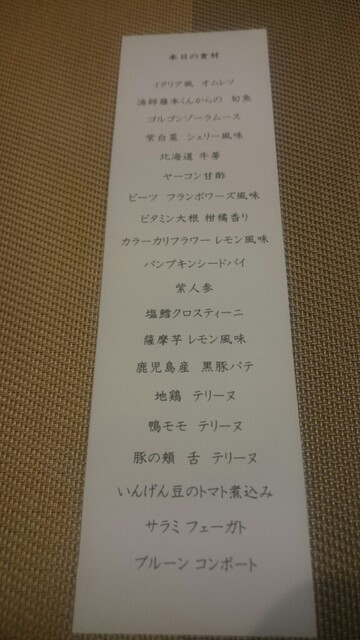 本日の食材
イタリア風 オムレツ
漁師藤本くんからの 旬魚
ゴルゴンゾーラムース
紫白菜 シェリー風味
北海道 牛蒡
ヤーコン甘酢
ビーツ フランボワーズ風味
ビタミン大根 柑橘香り
カラーカリフラワー レモン風味
パンプキンシードパイ
紫人参
塩鱈クロスティーニ
薩摩芋 レモン風味
鹿児島産 黒豚パテ
地鶏 テリーヌ
鴨モモ テリーヌ
豚の頬 舌 テリーヌ
いんげん豆のトマト煮込み
サラミ フェーガト
プルーン コンポート